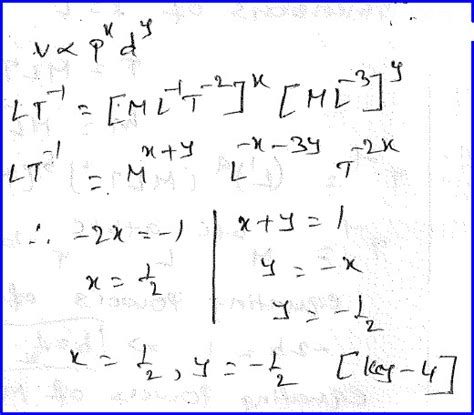 V ∝ P^x d^y
LT^-1 = [ML^-1T^-2]^x [ML^-3]^y
LT^-1 = M^x+y L^-x-3y T^-2x
∴ -2x = -1 | x+y = 1
x = 1/2 | y = -x
y = -1/2
x = 1/2, y = -1/2 [key-4]